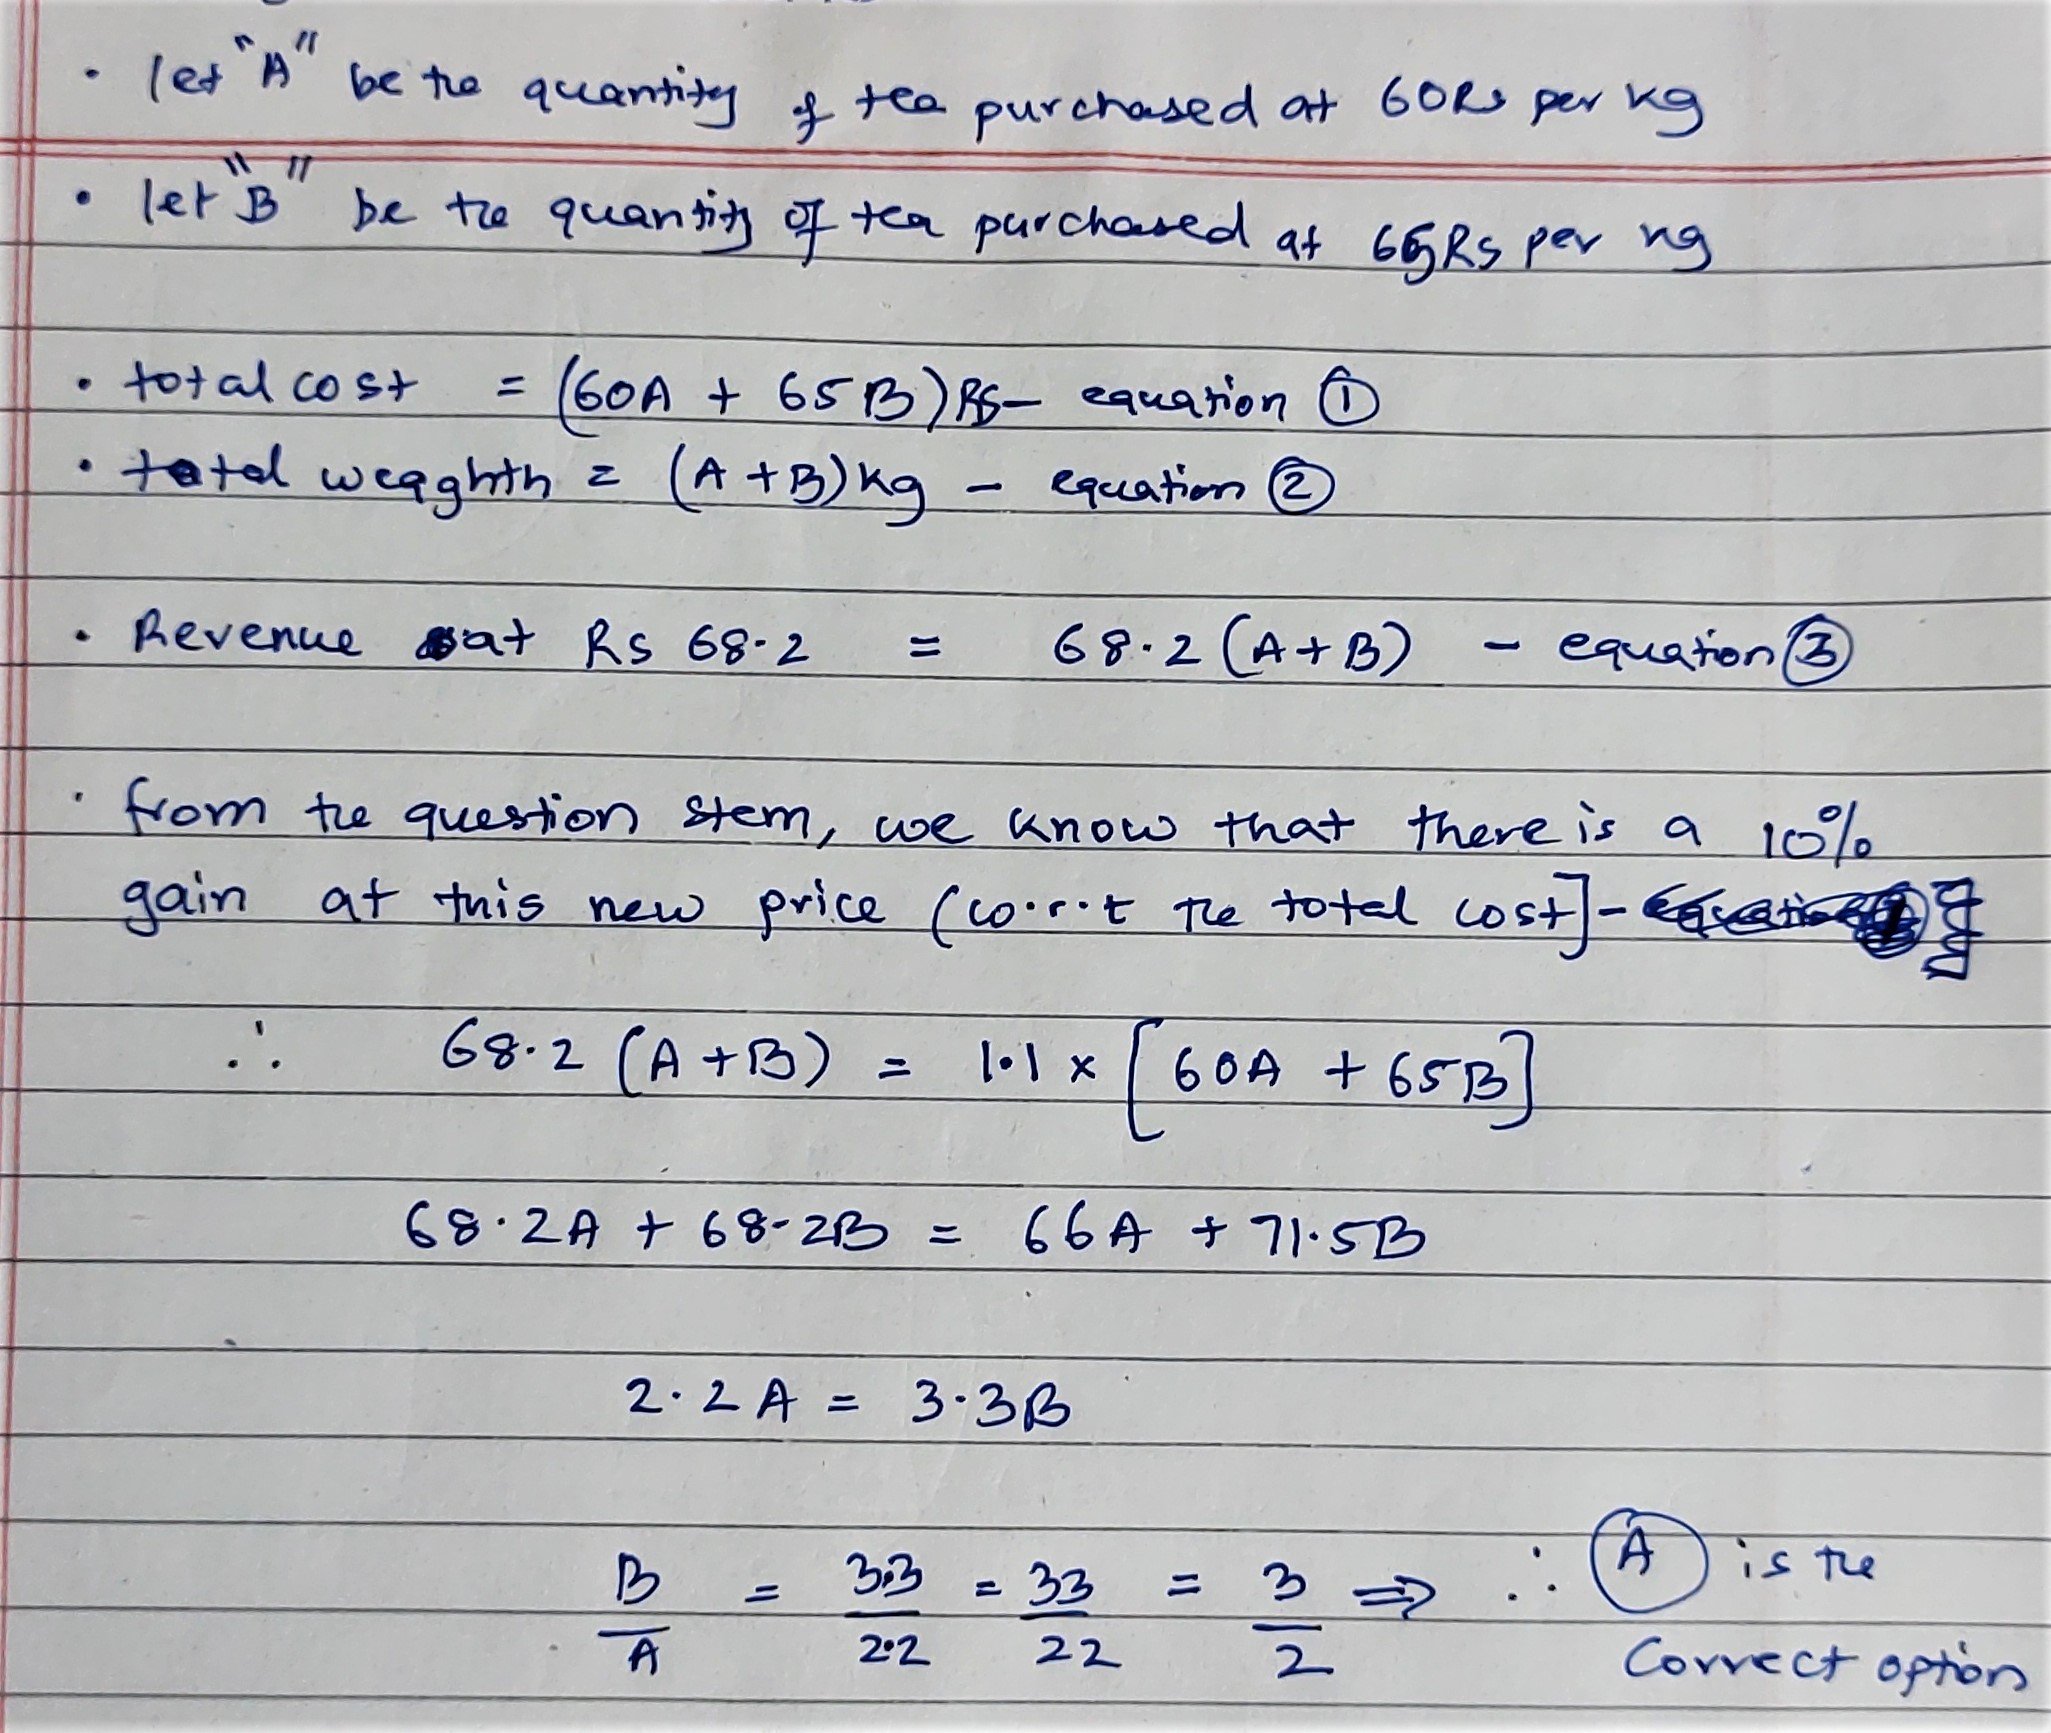 • let "A" be the quantity of tea purchased at 60Rs per kg
• let "B" be the quantity of tea purchased at 65Rs per kg
• total cost = (60A + 65B)Rs – equation ①
• total weaghth = (A + B)kg – equation ②
• Revenue at Rs 68.2 = 68.2 (A+B) – equation ③
• from the question stem, we know that there is a 10%
gain at this new price (w.r.t the total cost] –
∴ 68.2 (A+B) = 1.1 x [60A + 65B]
68.2A + 68.2B = 66A + 71.5B
2.2A = 3.3B
B/A = 3.3/2.2 = 33/22 = 3/2 ⇒ ∴ Ⓐ is the
correct option